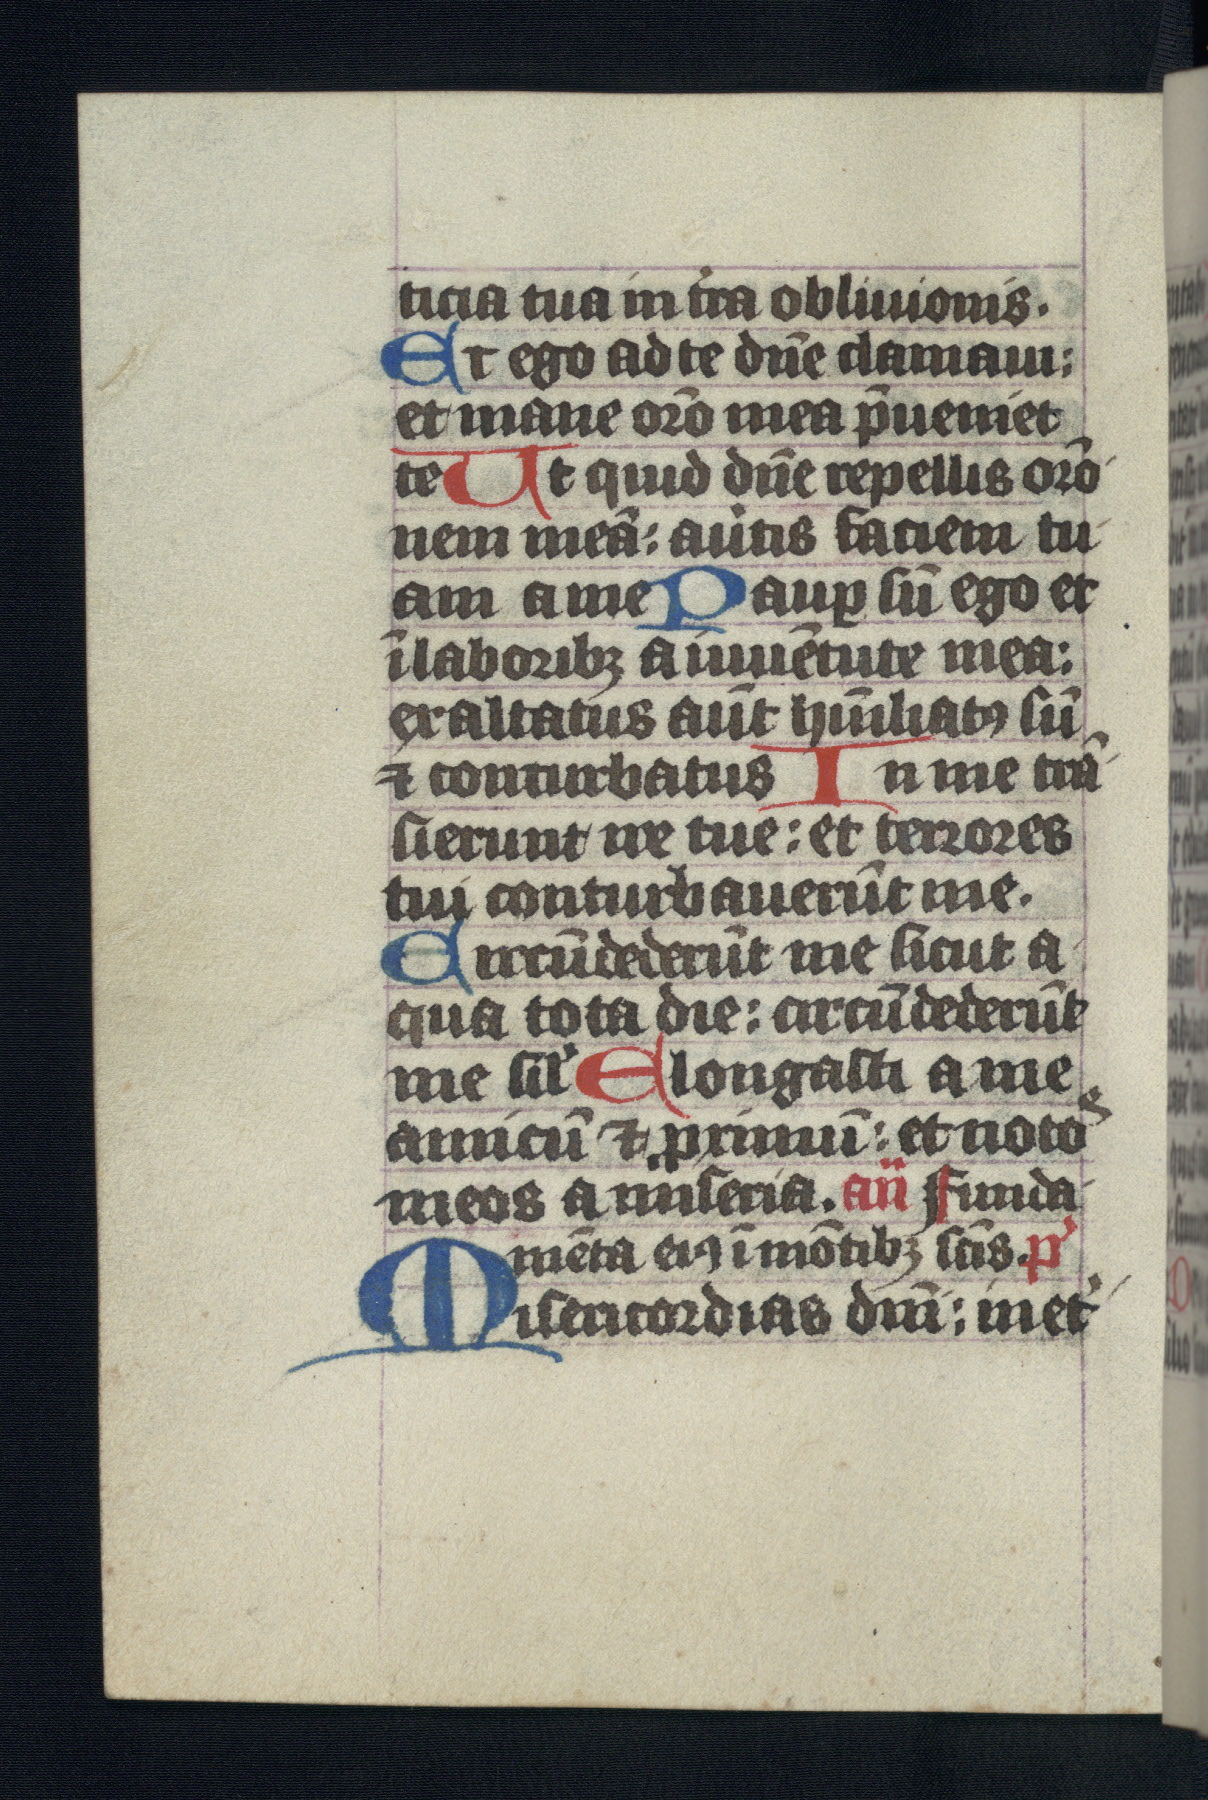 ticia tua in t̄ra obliuionis.
Et ego ad te dn̄e clamaui:
et mane orō mea p̄ueniet
te Ut quid dn̄e repellis orō
nem meā: au̇tis faciem tu
am a me Paup̲ sū ego et
ī laboribꝫ a iuuētute mea:
exaltatus aūt hūiliatꝰ sū
⁊ conturbatus In me trā
sierunt ire tue: et terrores
tui conturbauerūt me.
Circūdederūt me sicut a
qua tota die: circūdederūt
me sil' Elongasti a me
amicū ⁊ primū: et notos
meos a miseria. an̄ Funda
mēta eiꝰ ī mōtibꝫ scīs. p̄
Misericordias dn̄i: in et'